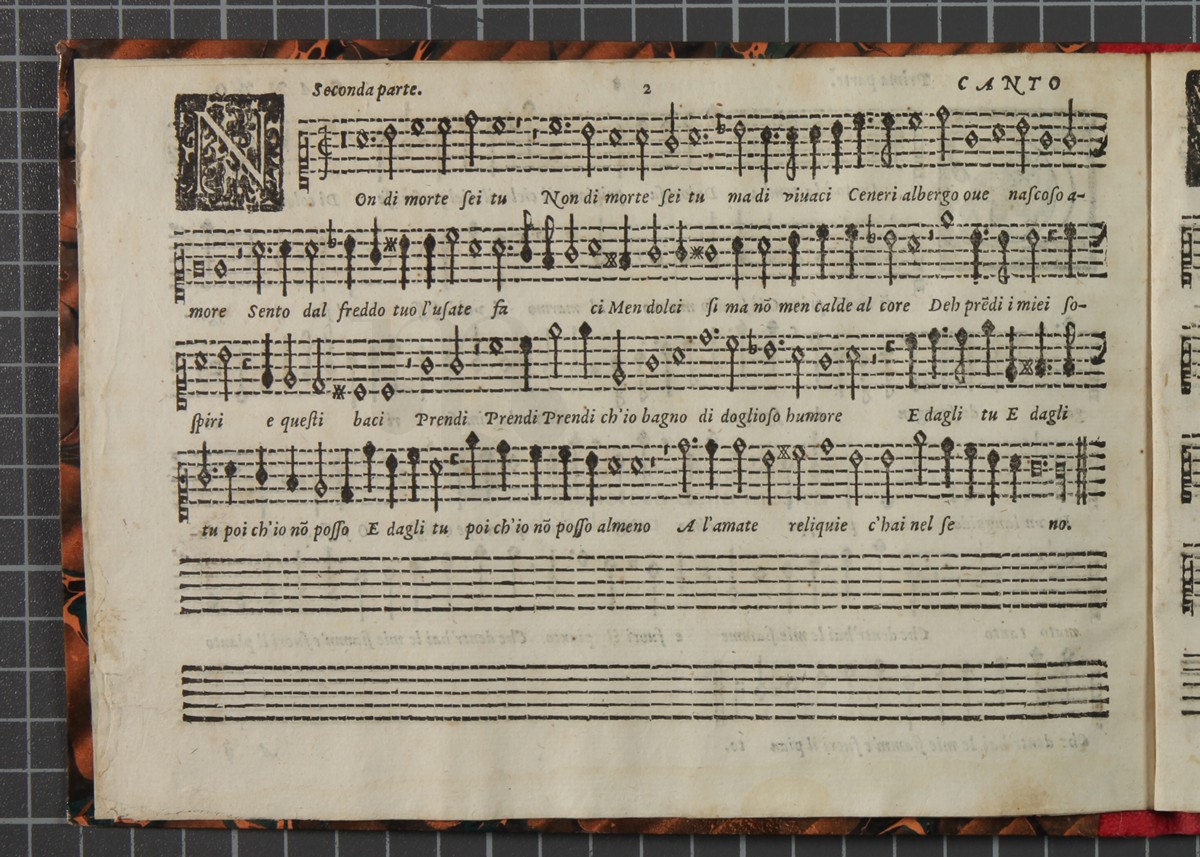 Seconda parte. 2 CANTO
NOn di morte sei tu Non di morte sei tu ma di viuaci Ceneri albergo oue nascoso a-
more Sento dal freddo tuo l'usate fa ci Men dolci si ma nõ men calde al core Deh prẽdi i miei so-
spiri e questi baci Prendi Prendi Prendi ch'io bagno di doglioso humore E dagli tu E dagli
tu poi ch'io nõ posso E dagli tu poi ch'io nõ posso almeno A l'amate reliquie c'hai nel se no.